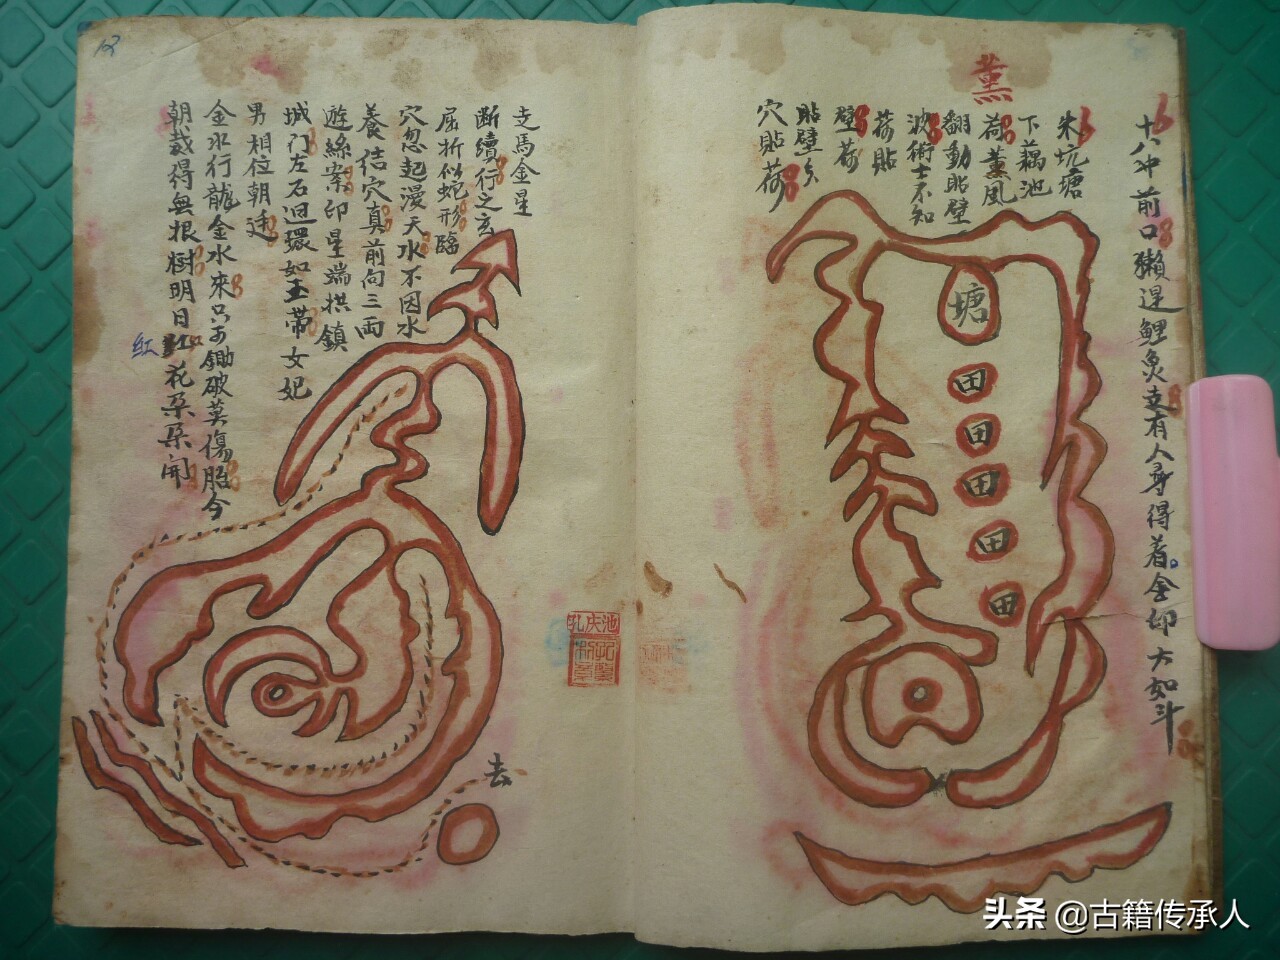 十八冲前口獭逞鯉魚走有人尋得着金印大如斗
朱坑塘
下藕池
荷薰風
薰
翻動貼壁
波術士不知
荷貼
壁荷
貼壁
穴貼荷
塘
田
田
田
田
田
走馬金星
断續行之玄
屈折似蛇形臨
穴忽起漫天水不因水
養结穴真前向三両
遊絲案印星端拱鎮
城门左右迴環如玉帶女妃
男相位朝廷
金水行龍金水來只可鋤破莫傷胎今
朝栽得無根樹明日紅花朶朶開
红
去
头条 @古籍传承人